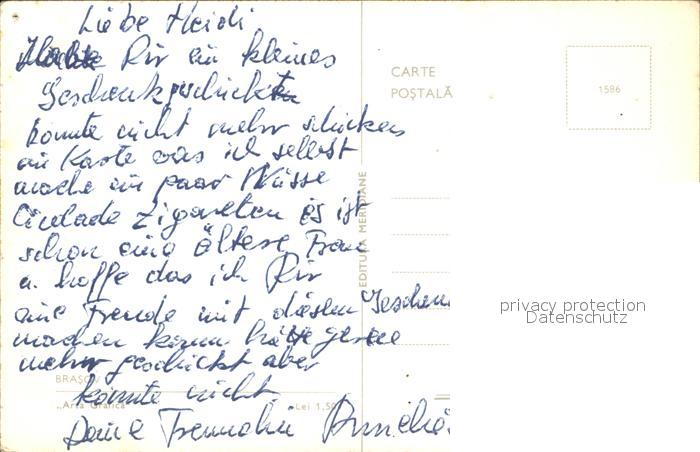 Liebe Heidi
Habe Dir ein kleines
Geschenk geschickt
konnte nicht mehr schicken
ein Karte was ich selbst
mache ein paar Nüsse
Zigaretten es ist
schon eine ältere Frau
u. hoffe das ich Dir
eine Freude mit diesem Geschen
machen kann hätte gerne
mehr geschickt aber
konnte nicht
Deine Freundin
CARTE
POŞTALĂ
1586
EDITURA MERIDIANE
BRAŞOV
„Arta Grafică"
Lei 1,50
privacy protection
Datenschutz